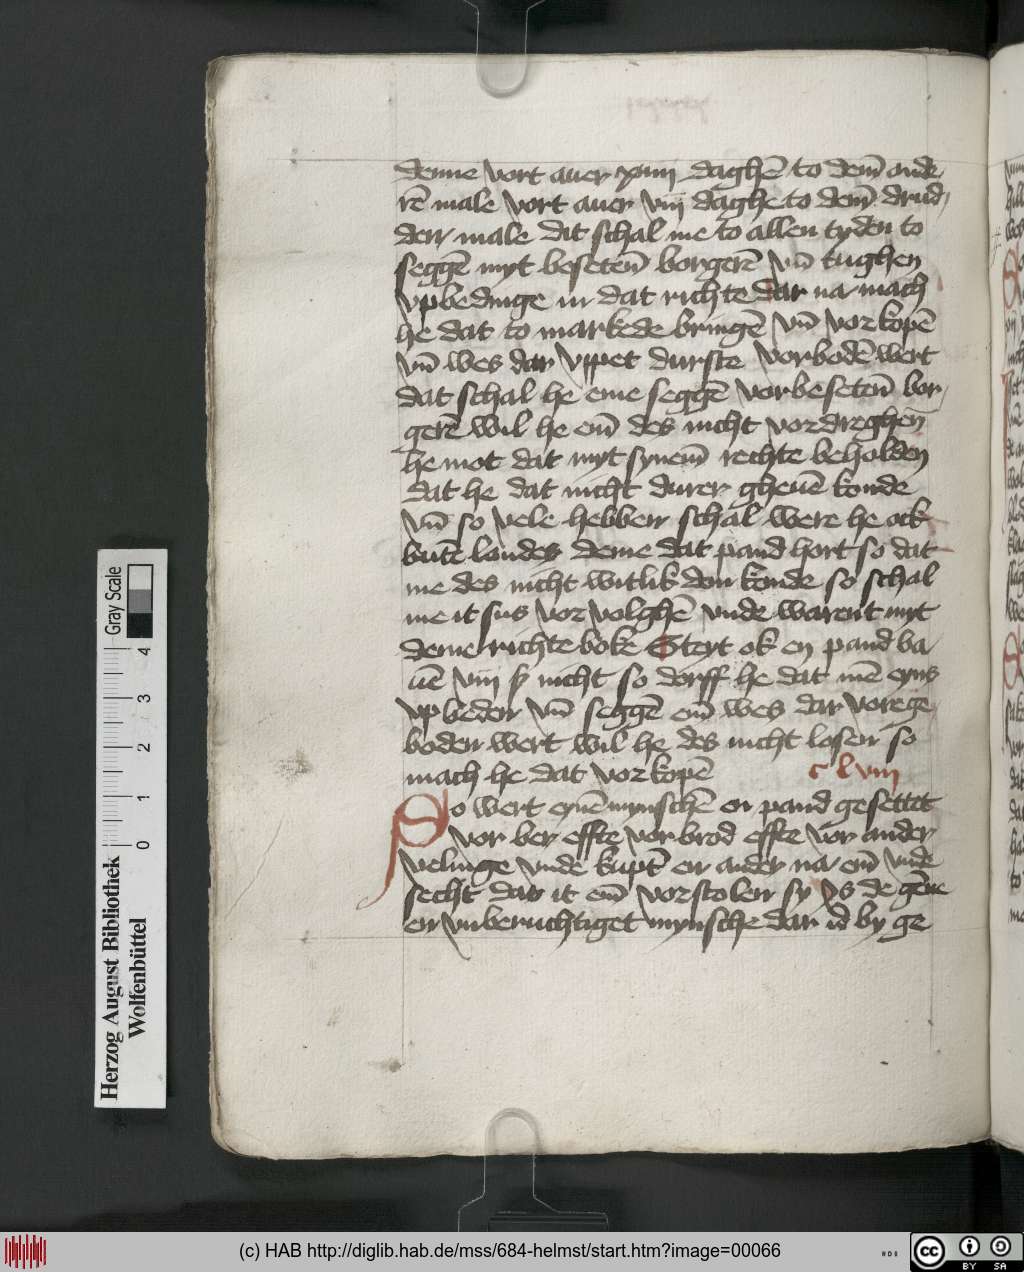 denne vort auer xiiij daghē to dem̄ ande
rē male vort auer viij daghe to dem̄ drud
den male dat schal me to allen tyden to
seggē myt besetēn borgerē vn̄ tughen
vpbedinge in dat richte dar na mach
he dat to markede bringē vn̄ vorkopē
vn̄ wes dar vppet durste vorbodē wert
dat schal he eme seggē vor besetēn bor
gerē wil he em̄ des nicht vordreghen
he mot dat myt synem̄ rechte beholden
dat he dat nicht durer gheuē konde
vn̄ so vele hebben schal were he ock
butē landes deme dat pand hort so dat
me des nicht witlik don konde so schal
me it sus vor volghē vnde warent myt
deme richte boke Steyt ok en pand ba
uē viij ß nicht so dorff he dat mē eyns
vpbeden vn̄ seggē em̄ wes dar vorege
boden wert wil he des nicht losen so
mach he dat vorkopē
clviij
So wert eynē mynschē en pand gesettet
vor ber effte vor brod effte vor ander
velinge vnde kupt en ander na em̄ vnde
secht dat it em̄ vorstolen sy ys de gēne
en vnberuchtiget mynsche dar id by ge
Gray Scale
0 1 2 3 4
Herzog August Bibliothek
Wolfenbüttel
(c) HAB http://diglib.hab.de/mss/684-helmst/start.htm?image=00066
cc BY SA